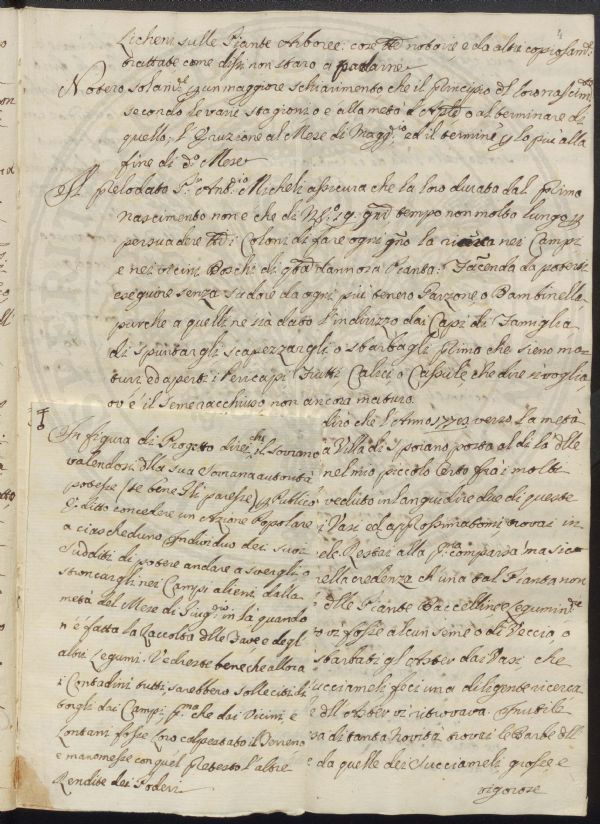 Licheni sulle Piante Arboree: cose tte notorie, e da altri copiosamte
trattate come dissi non starò a parlarne
Noterò solamte p un maggiore schiarimento che il Principio del loro nascimto
secondo le varie stagioni o è alla metà d'Aple o al terminare di
quello; l'Eruzione al Mese di Magg:io ed il termine p lo più alla
fine di do Mese
Il prelodato Sr Anto Micheli assicura che la loro durata dal Primo
nascimento non è che di No 19. gni tempo non molto lungo p
persuadere tti i Coloni di fare ogni gno la ricerca nei Campi
e nei vicini Boschi di qta dannosa Pianta: Facenda da potersi
eseguire senza sudore da ogni più tenero Garzone o Bambinello
purche a quelli ne sia dato l'indirizzo dai Capi di Famiglia
di spuntargli scapezzargli o sbarbagli Primo che sieno ma=
turi ed aperti i Pericapi Frutti Calici o Cassule che dire si voglia,
ov'è il seme racchiuso non ancora maturo.
dirò che l'Anno 1770 verso la metà
a Villa di Spoiano posta al di là delle
nel mio piccolo Orto fra i molti
veduto in languidire due di queste
i Vasi ed approssimatomi, trovai in
ele Restai alla pma comparsa ma sic
nella credenza ch'una tal Pianta non
delle Piante Baccelline, Legumin
o vi fosse alcun seme o di Veccio, o
sbarbati gl'Aster dai Vasi che
Succiameli feci una diligente ricerca
e dll'Aster vi ritrovava. Inutile
sa di tanta novità trovai le Barbe dll
e da quelle dei Succiameli, grosse e
vigorose
In figura di Progetto direi che il Sovrano
valendosi della sua Sovrana autorità
potesse (se bene Gli paresse) p Publico
Editto concedere un Azione Popolare
a ciascheduno Individuo dei suoi
Sudditi di potere andare a svergli o
stroncargli nei Campi alieni dalla
metà del Mese di Giugno in là quando
n'è fatta la Raccolta delle Fave e degl
altri Legumi. Vedreste bene che allora
i Contadini tutti sarebbero solleciti di
torgli dai Campi, pma che dai Vicini e
Lontani fosse loro calpestato il Terreno
e manomesse con quel Pretesto l'altre
Rendite dei Poderi